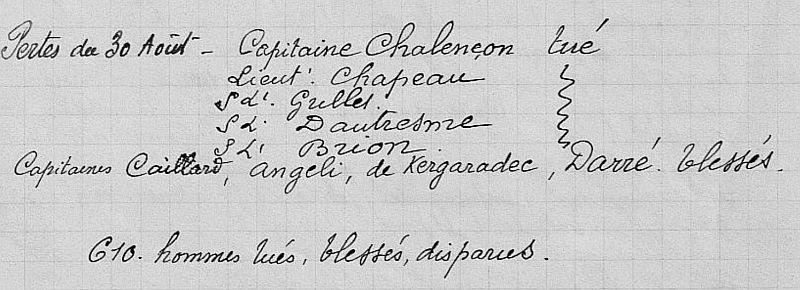 Pertes du 30 Août - Capitaine Chalençon tué
Lieutt. Chapeau
S Lt. Grilles.
S Lt. Dautresme
S Lt Brion.
Capitaines Caillard, Angeli, de Kergaradec, Darré. blessés.
610. hommes tués, blessés, disparus.